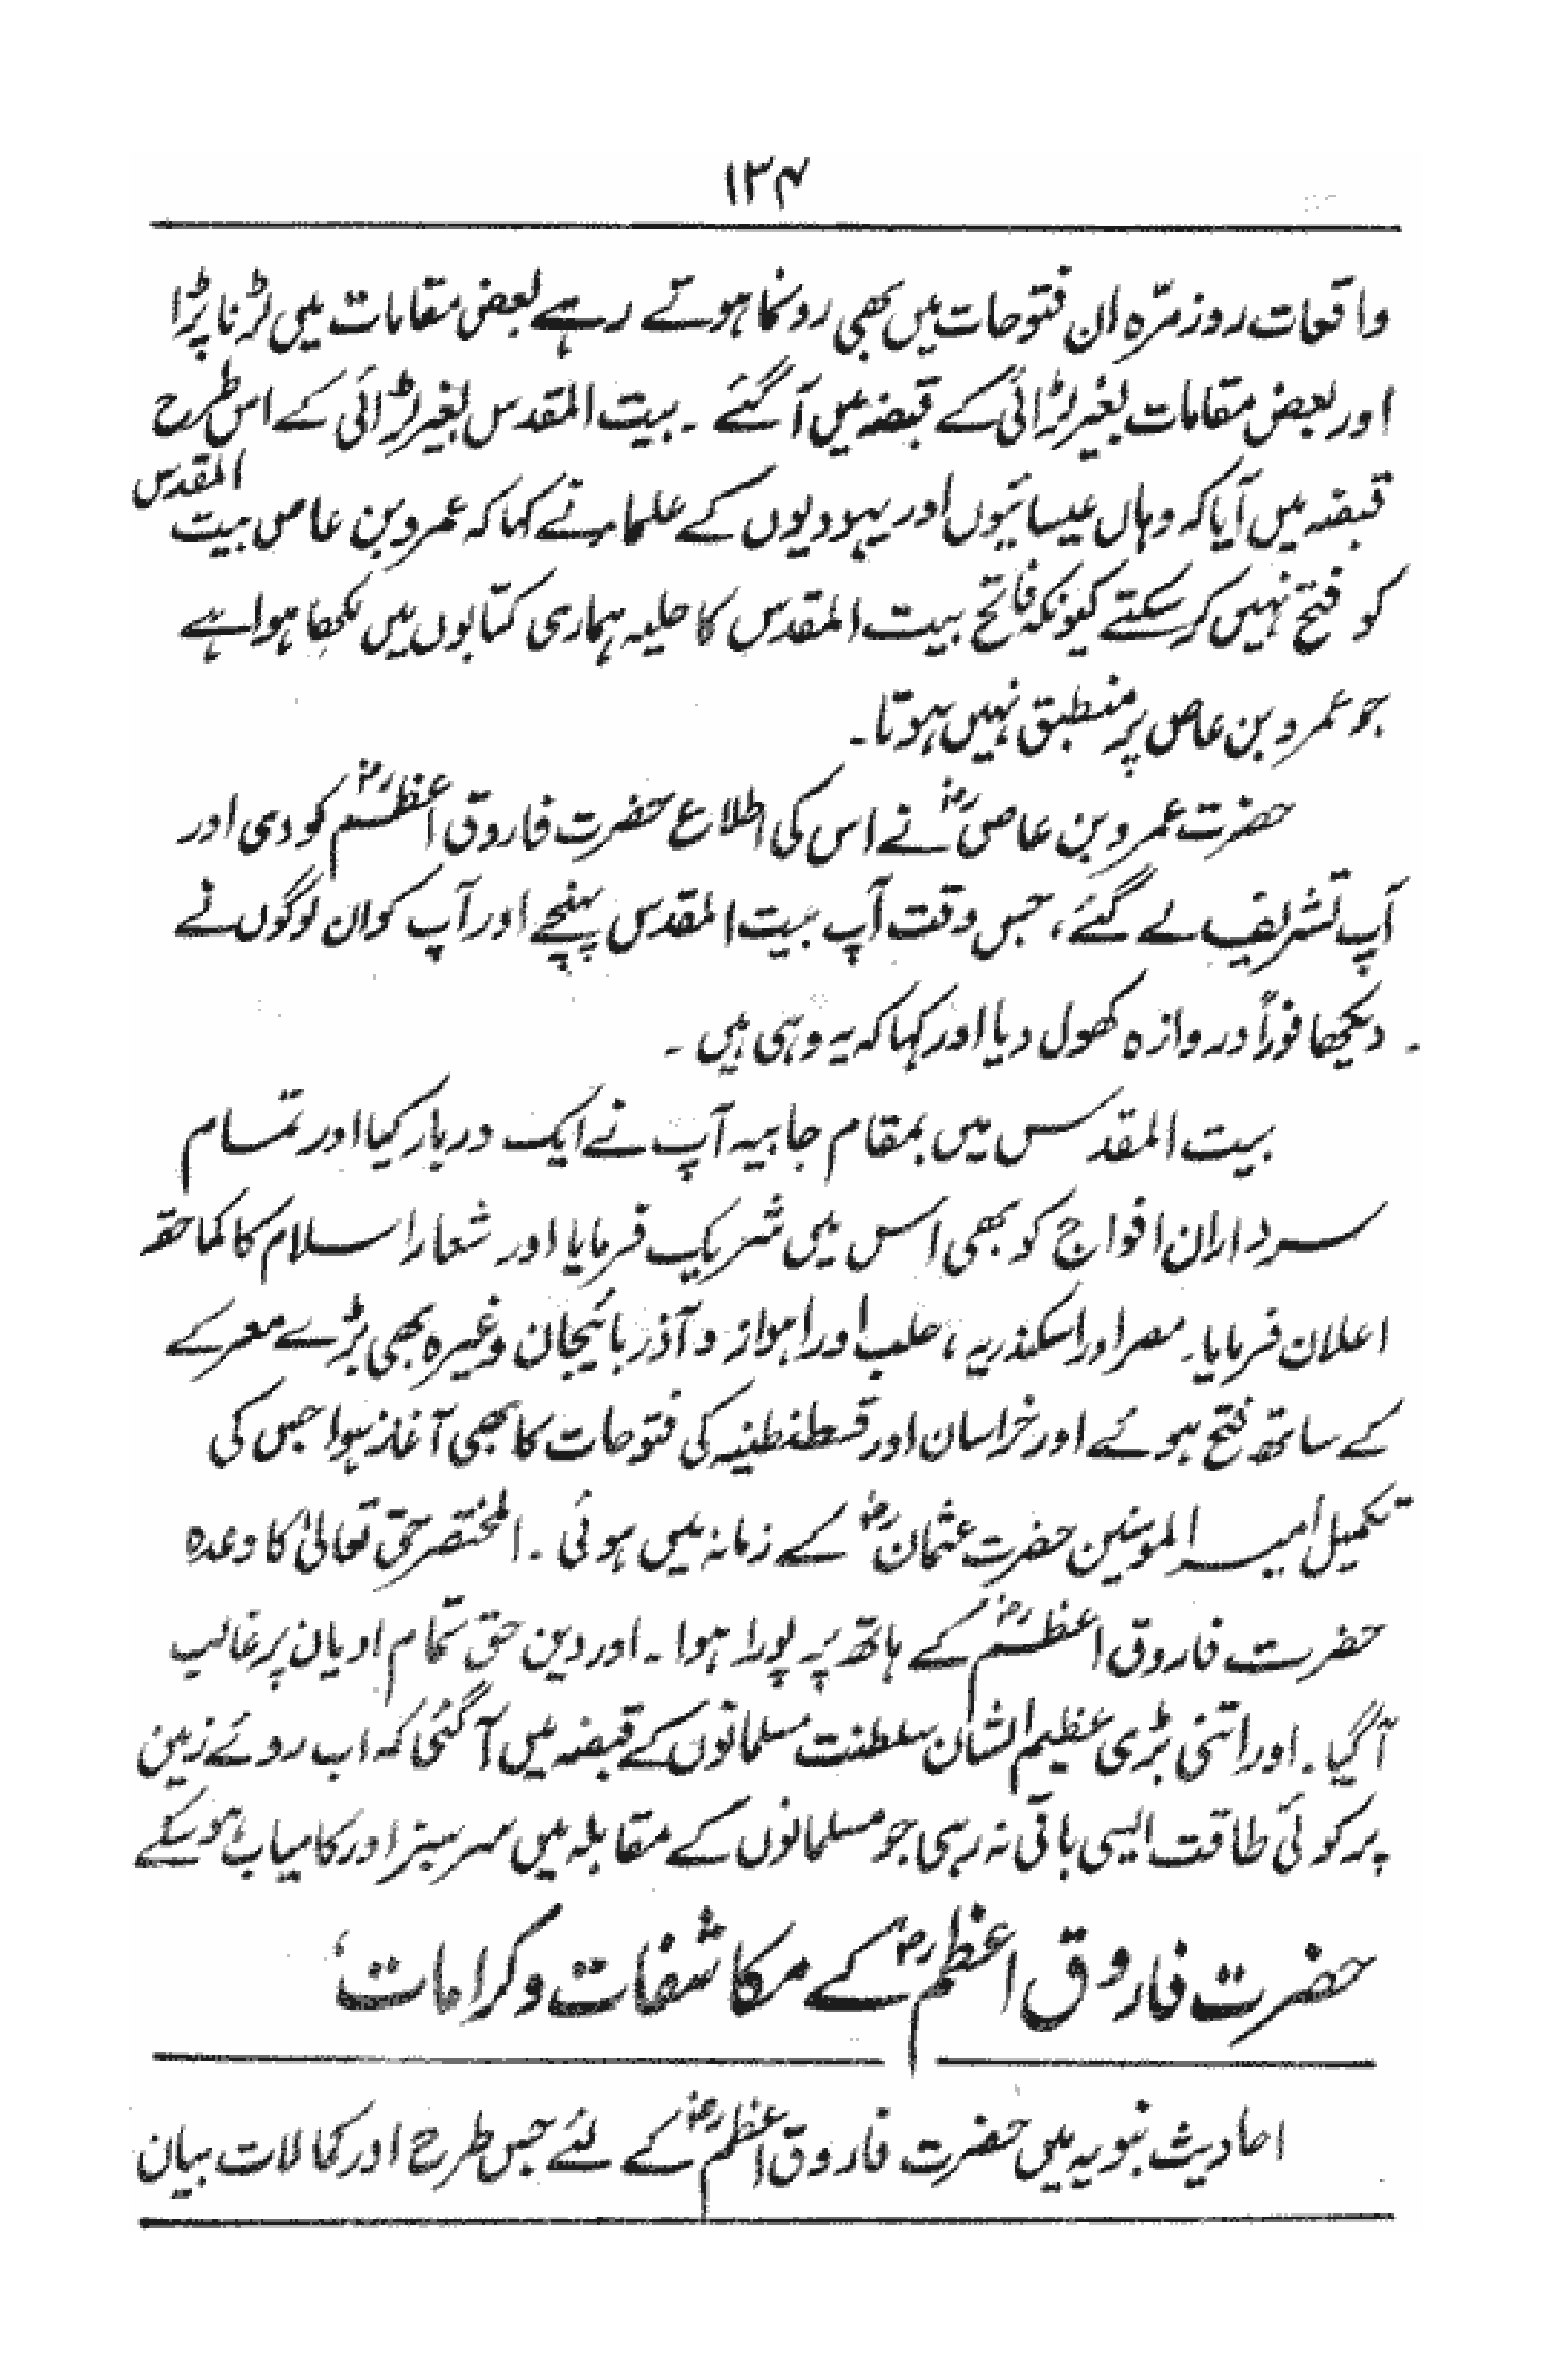 ۱۳۴
واقعات روزمرّہ ان فتوحات میں بھی رونما ہوتے رہے بعض مقامات میں لڑنا پڑا
اور بعض مقامات بغیر لڑائی کے قبضہ میں آگئے ۔ بیت المقدس بغیر لڑائی کے اس طرح
قبضہ میں آیا کہ وہاں عیسائیوں اور یہودیوں کے علماء نے کہا کہ عمرو بن عاص بیت المقدس
کو فتح نہیں کر سکتے کیونکہ فاتح بیت المقدس کا حلیہ ہماری کتابوں میں لکھا ہوا ہے
جو عمرو بن عاص پر منطبق نہیں ہوتا۔
حضرت عمرو بن عاصؓ نے اس کی اطلاع حضرت فاروق اعظمؓ کو دی اور
آپ تشریف لے گئے، جس وقت آپ بیت المقدس پہنچے اور آپ کو ان لوگوں نے
دیکھا فوراً دروازہ کھول دیا اور کہا کہ یہ وہی ہیں ۔
بیت المقدس میں بمقام جابیہ آپ نے ایک دربار کیا اور تمام
سرداران افواج کو بھی اس میں شریک فرمایا اور شعار اسلام کا کماحقہ
اعلان فرمایا۔ مصر اور اسکندریہ ، حلب اور اہواز و آذربائیجان وغیرہ بھی بڑے معرکے
کے ساتھ فتح ہوئے اور خراسان اور قسطنطنیہ کی فتوحات کا بھی آغاز ہوا جس کی
تکمیل امیر المومنین حضرت عثمانؓ کے زمانہ میں ہوئی ۔ المختصر حق تعالیٰ کا وعدہ
حضرت فاروق اعظمؓ کے ہاتھ پہ پورا ہوا ۔ اور دین حق تمام ادیان پر غالب
آگیا ۔ اور اتنی بڑی عظیم الشان سلطنت مسلمانوں کے قبضہ میں آگئی کہ اب روئے زمین
پر کوئی طاقت ایسی باقی نہ رہی جو مسلمانوں کے مقابلہ میں سرسبز اور کامیاب ہو سکے
حضرت فاروق اعظمؓ کے مکاشفات و کرامات
احادیث نبویہ میں حضرت فاروق اعظمؓ کے لئے جس طرح اور کمالات بیان